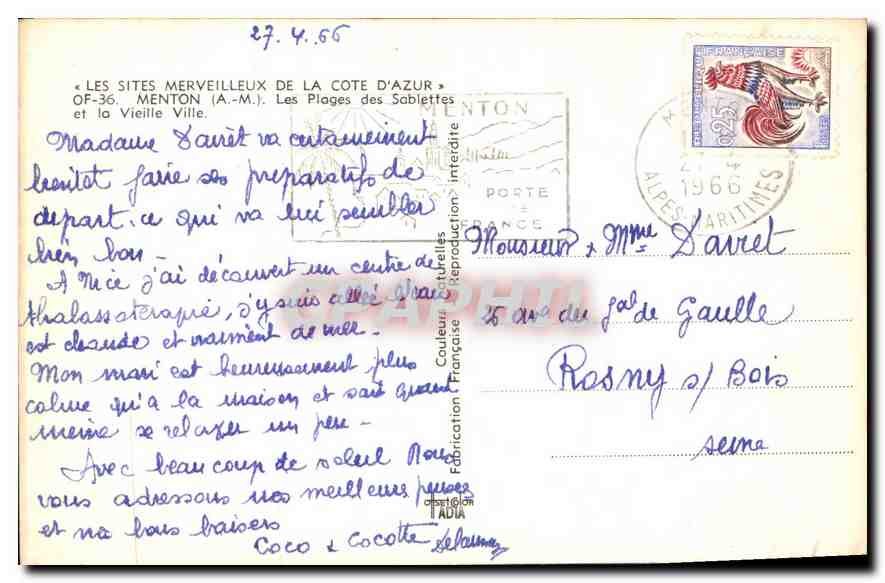 27.4.66
« LES SITES MERVEILLEUX DE LA COTE D'AZUR »
OF-36. MENTON (A.-M.). Les Plages des Sablettes
et la Vieille Ville.
Madame Davret va certainement
bientot faire ses preparatifs de
depart. ce qui va lui sembler
bien bon -
A Nice j'ai découvert un centre de
thalassoterapie, j'y suis allée l'eau
est chaude et vraiment de mer -
Mon mari est heureusement plus
calme qu'a la maison et sait quand
meme se relaxer un peu -
Avec beaucoup de soleil Nous
vous adressons nos meilleures pensées
et nos bons baisers
Coco & Cocotte
Couleurs Naturelles
Fabrication Française Reproduction interdite
OFSET COLOR
TADIA
MENTON
PORTE
FRANCE
POSTES
FRANÇAISE
0,25
1966
ALPES-MARITIMES
Monsieur & Mme Davret
26 ave du Gal de Gaulle
Rosny s/ Bois
Seine
CPAPHIL